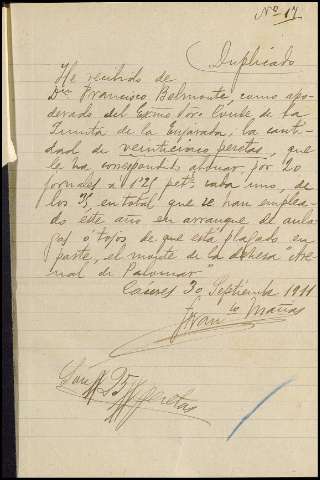 Nº 17
Duplicado
He recibido de
Dn. Francisco Belmonte, como apo-
derado del Excmo Sor. Conde de La
Quinta de la Enjarada, la canti-
dad de veinticinco pesetas, que
le ha correspondido abonar por 20
jornales á 1'25 pets. cada uno, de
los 35 en total, que se han emplea-
do este año en arranque de aula-
gas ó tojos, de que está plagado en
parte, el monte de la dehesa "Are-
nal de Palomar"
Cáceres 30 Septiembre 1911
Franco Mañas
Son 25 Pesetas